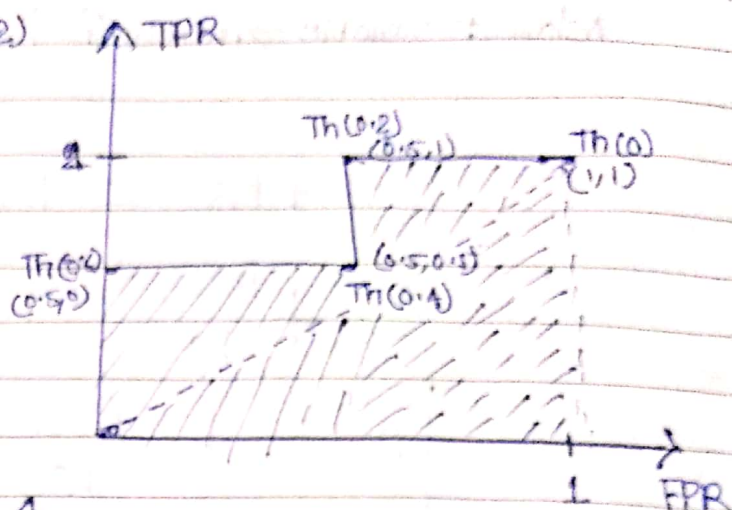 2)
TPR
Th(0.2)
(0.5,1)
Th(0)
(1,1)
1
(0.5,0.5)
(0.5,0)
Th(0.4)
1
FPR